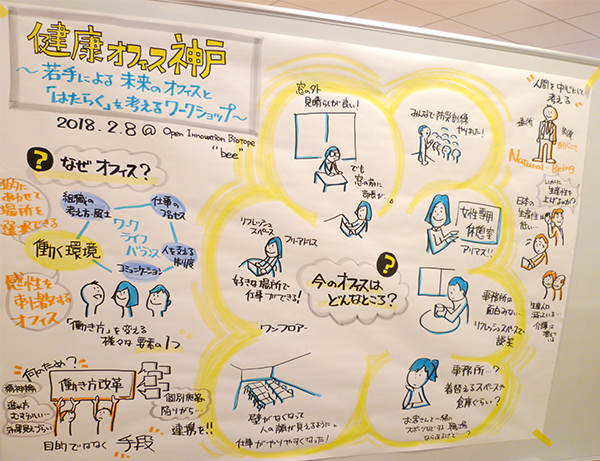 健康オフィス神戸
～若手による未来のオフィスと
「はたらく」を考えるワークショップ～
2018.2.8 @ Open Innovation Biotope
"bee"
? なぜオフィス?
目的に
あわせて
場所を
選択できる
組織の
考え方・風土
仕事の
プロセス
ワーク
ライフ
バランス
働く環境
人を支える
制度
コミュニケーション
感性を
刺激する
オフィス
「働き方」を変える
様々な要素の1つ
何のため?
働き方改革
個別最適に
陥りがち…
連携を!!
目的ではなく手段
窓の外
見晴らしが良い!
でも
窓の前に
部長が…
みんなで防災訓練
やりました!
リフレッシュ
スペース
フリーアドレス
好きな場所で
仕事ができる!
女性専用
休憩室
アリマス!!
?
今のオフィスは
どんなところ?
事務所は
面白みない…
リフレッシュスペースで
談笑
ワンフロアー
壁がなくなって
人の顔が見えるように。
仕事がやりやすくなった!
事務所…?
着替えるスペースや
倉庫ぐらい?
お客さんと一緒に
人間を中心として
考える
Natural-Being
いかに
生産性を
上げるか?
日本の
生産性は
低い…
生産人口
減っている…
介護は
増えている